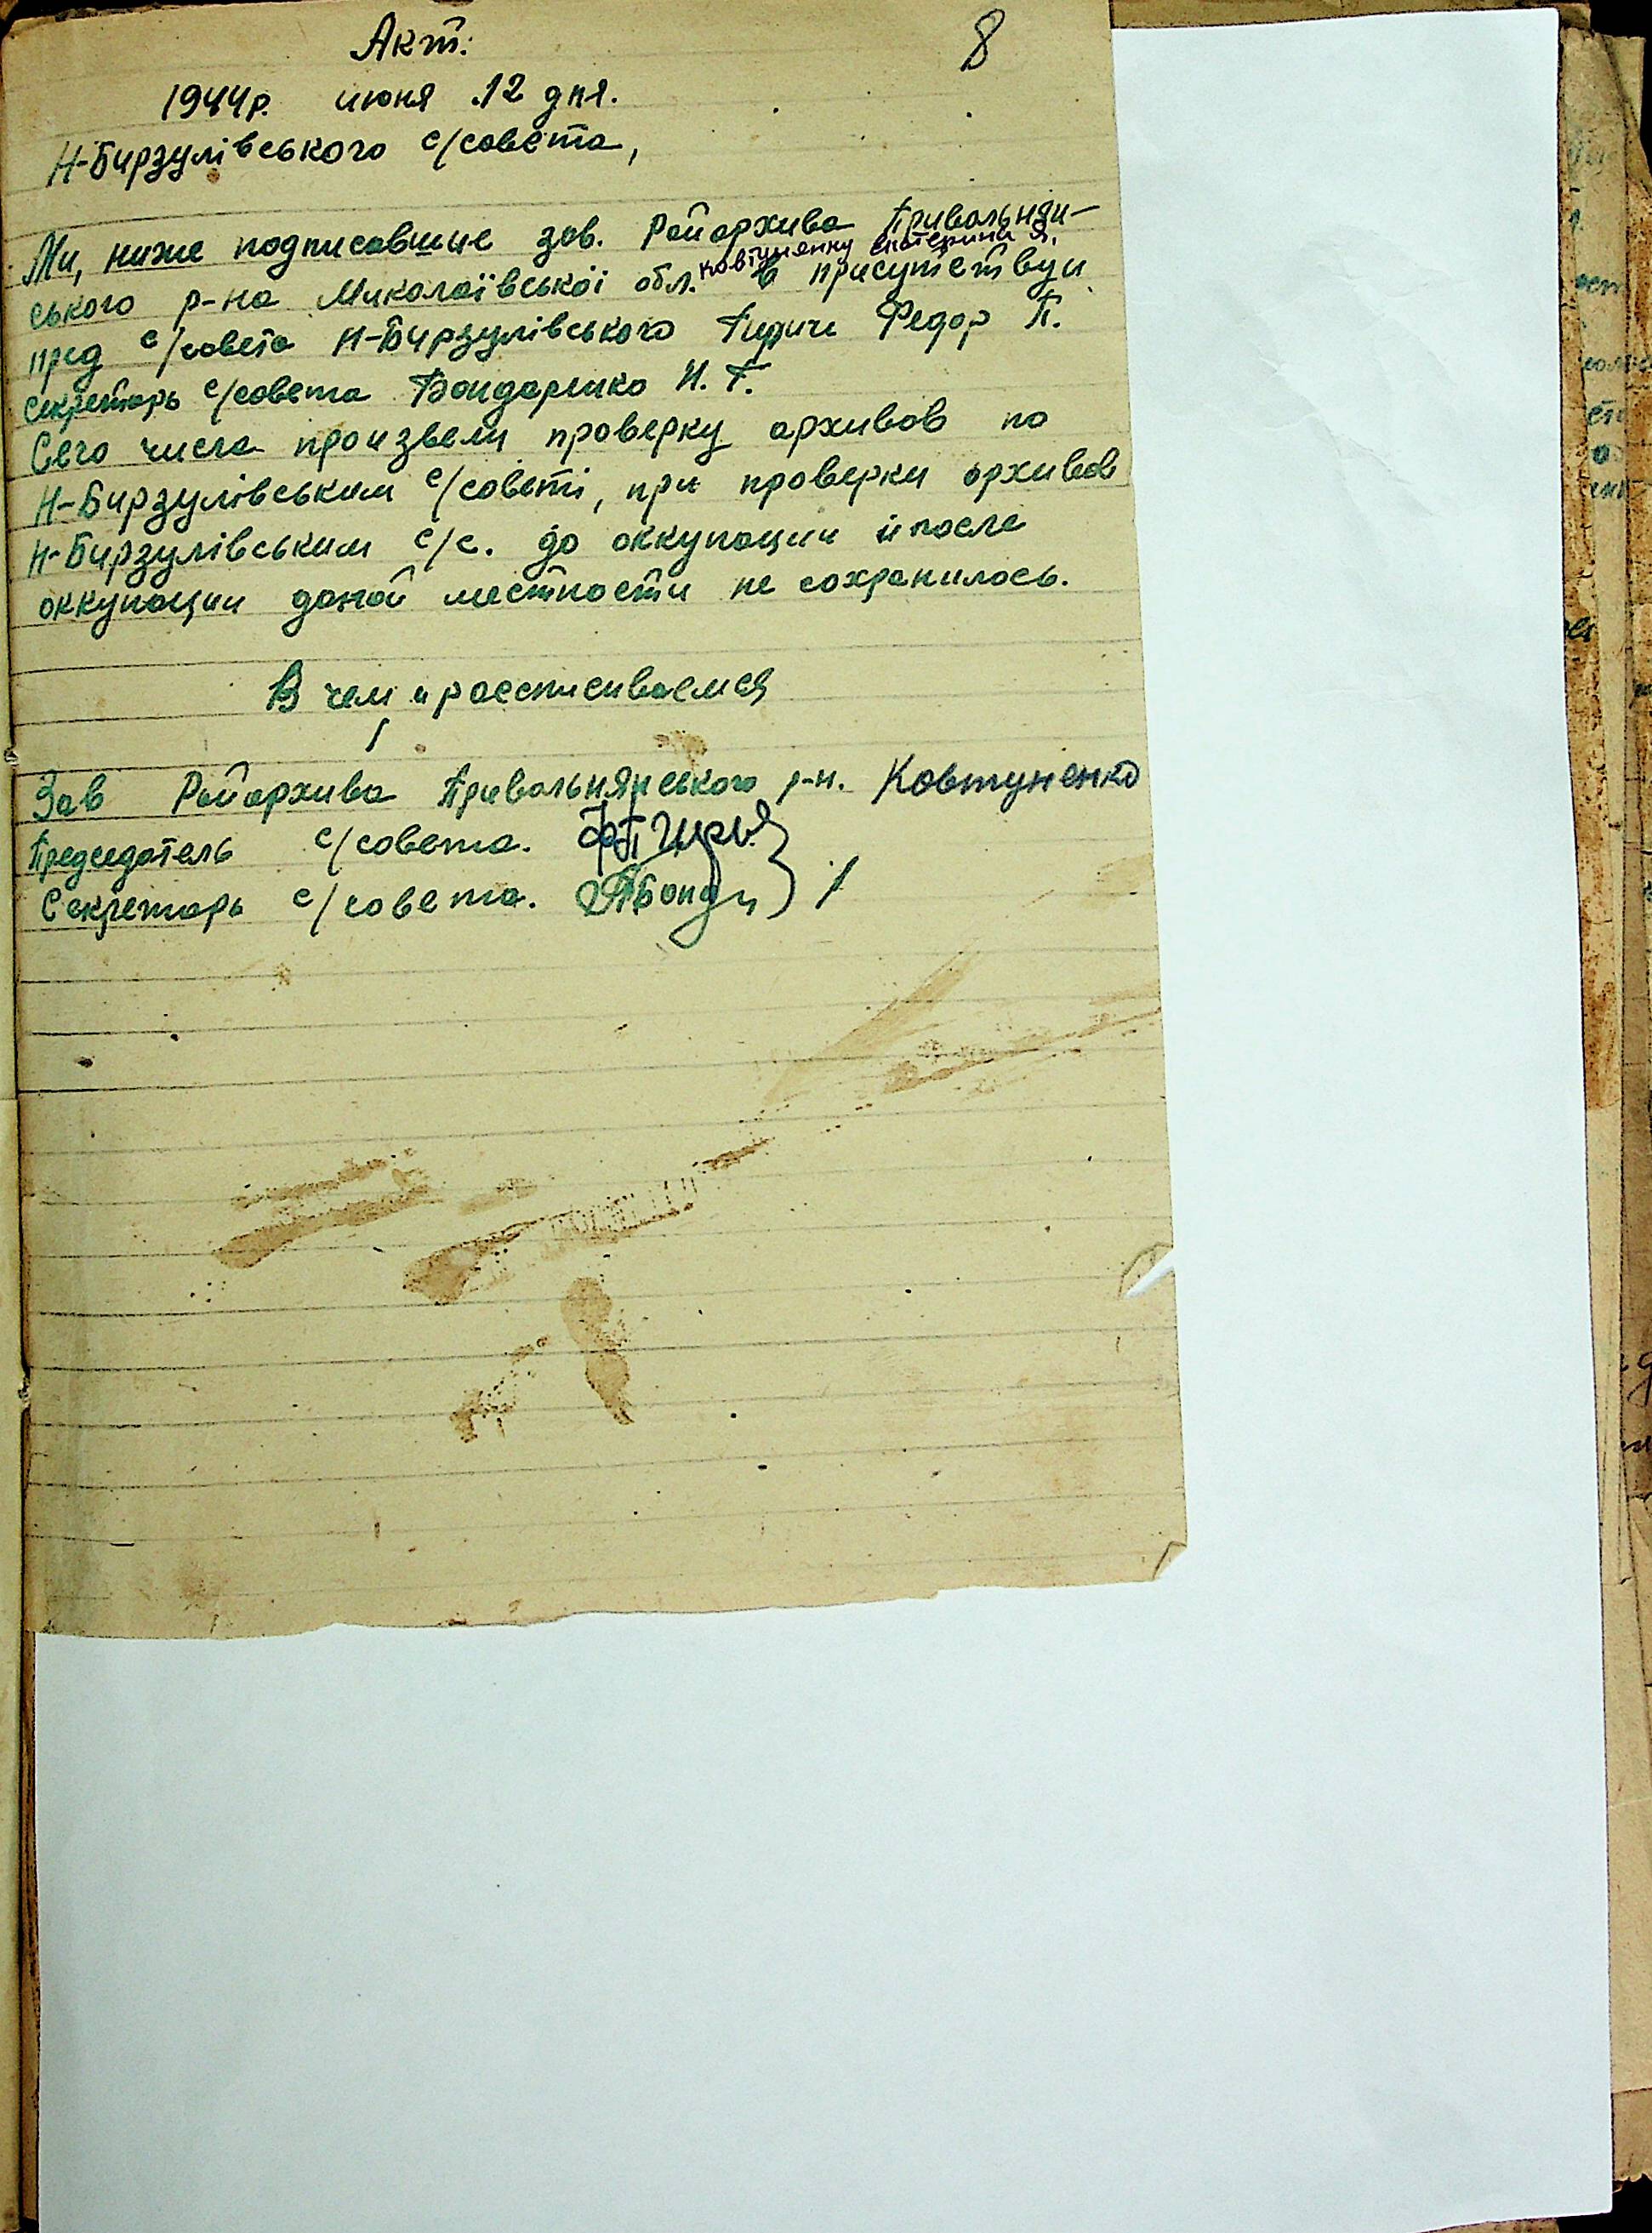 8
Акт.
1944р. июня 12 дня.
Н-Бирзулівського с/совета,
Ми, ниже подписавшие зав. Райархива Привольнян-
Ковтуненку Екатерина Я.
ського р-на Миколаївської обл. в присутствуи
пред с/совета Н-Бирзулівського Федор П.
секретарь с/совета Бондаренко Н. Г.
Сего числа произвели проверку архивов по
Н-Бирзулівським с/советі, при проверки архивов
Н-Бирзулівським с/с. до оккупации и после
оккупации даной местности не сохранилось.
В чем и россписиваемся
Зав Райархива Привольнянського р-н. Ковтуненко
Председатель с/совета.
Секретарь с/совета.